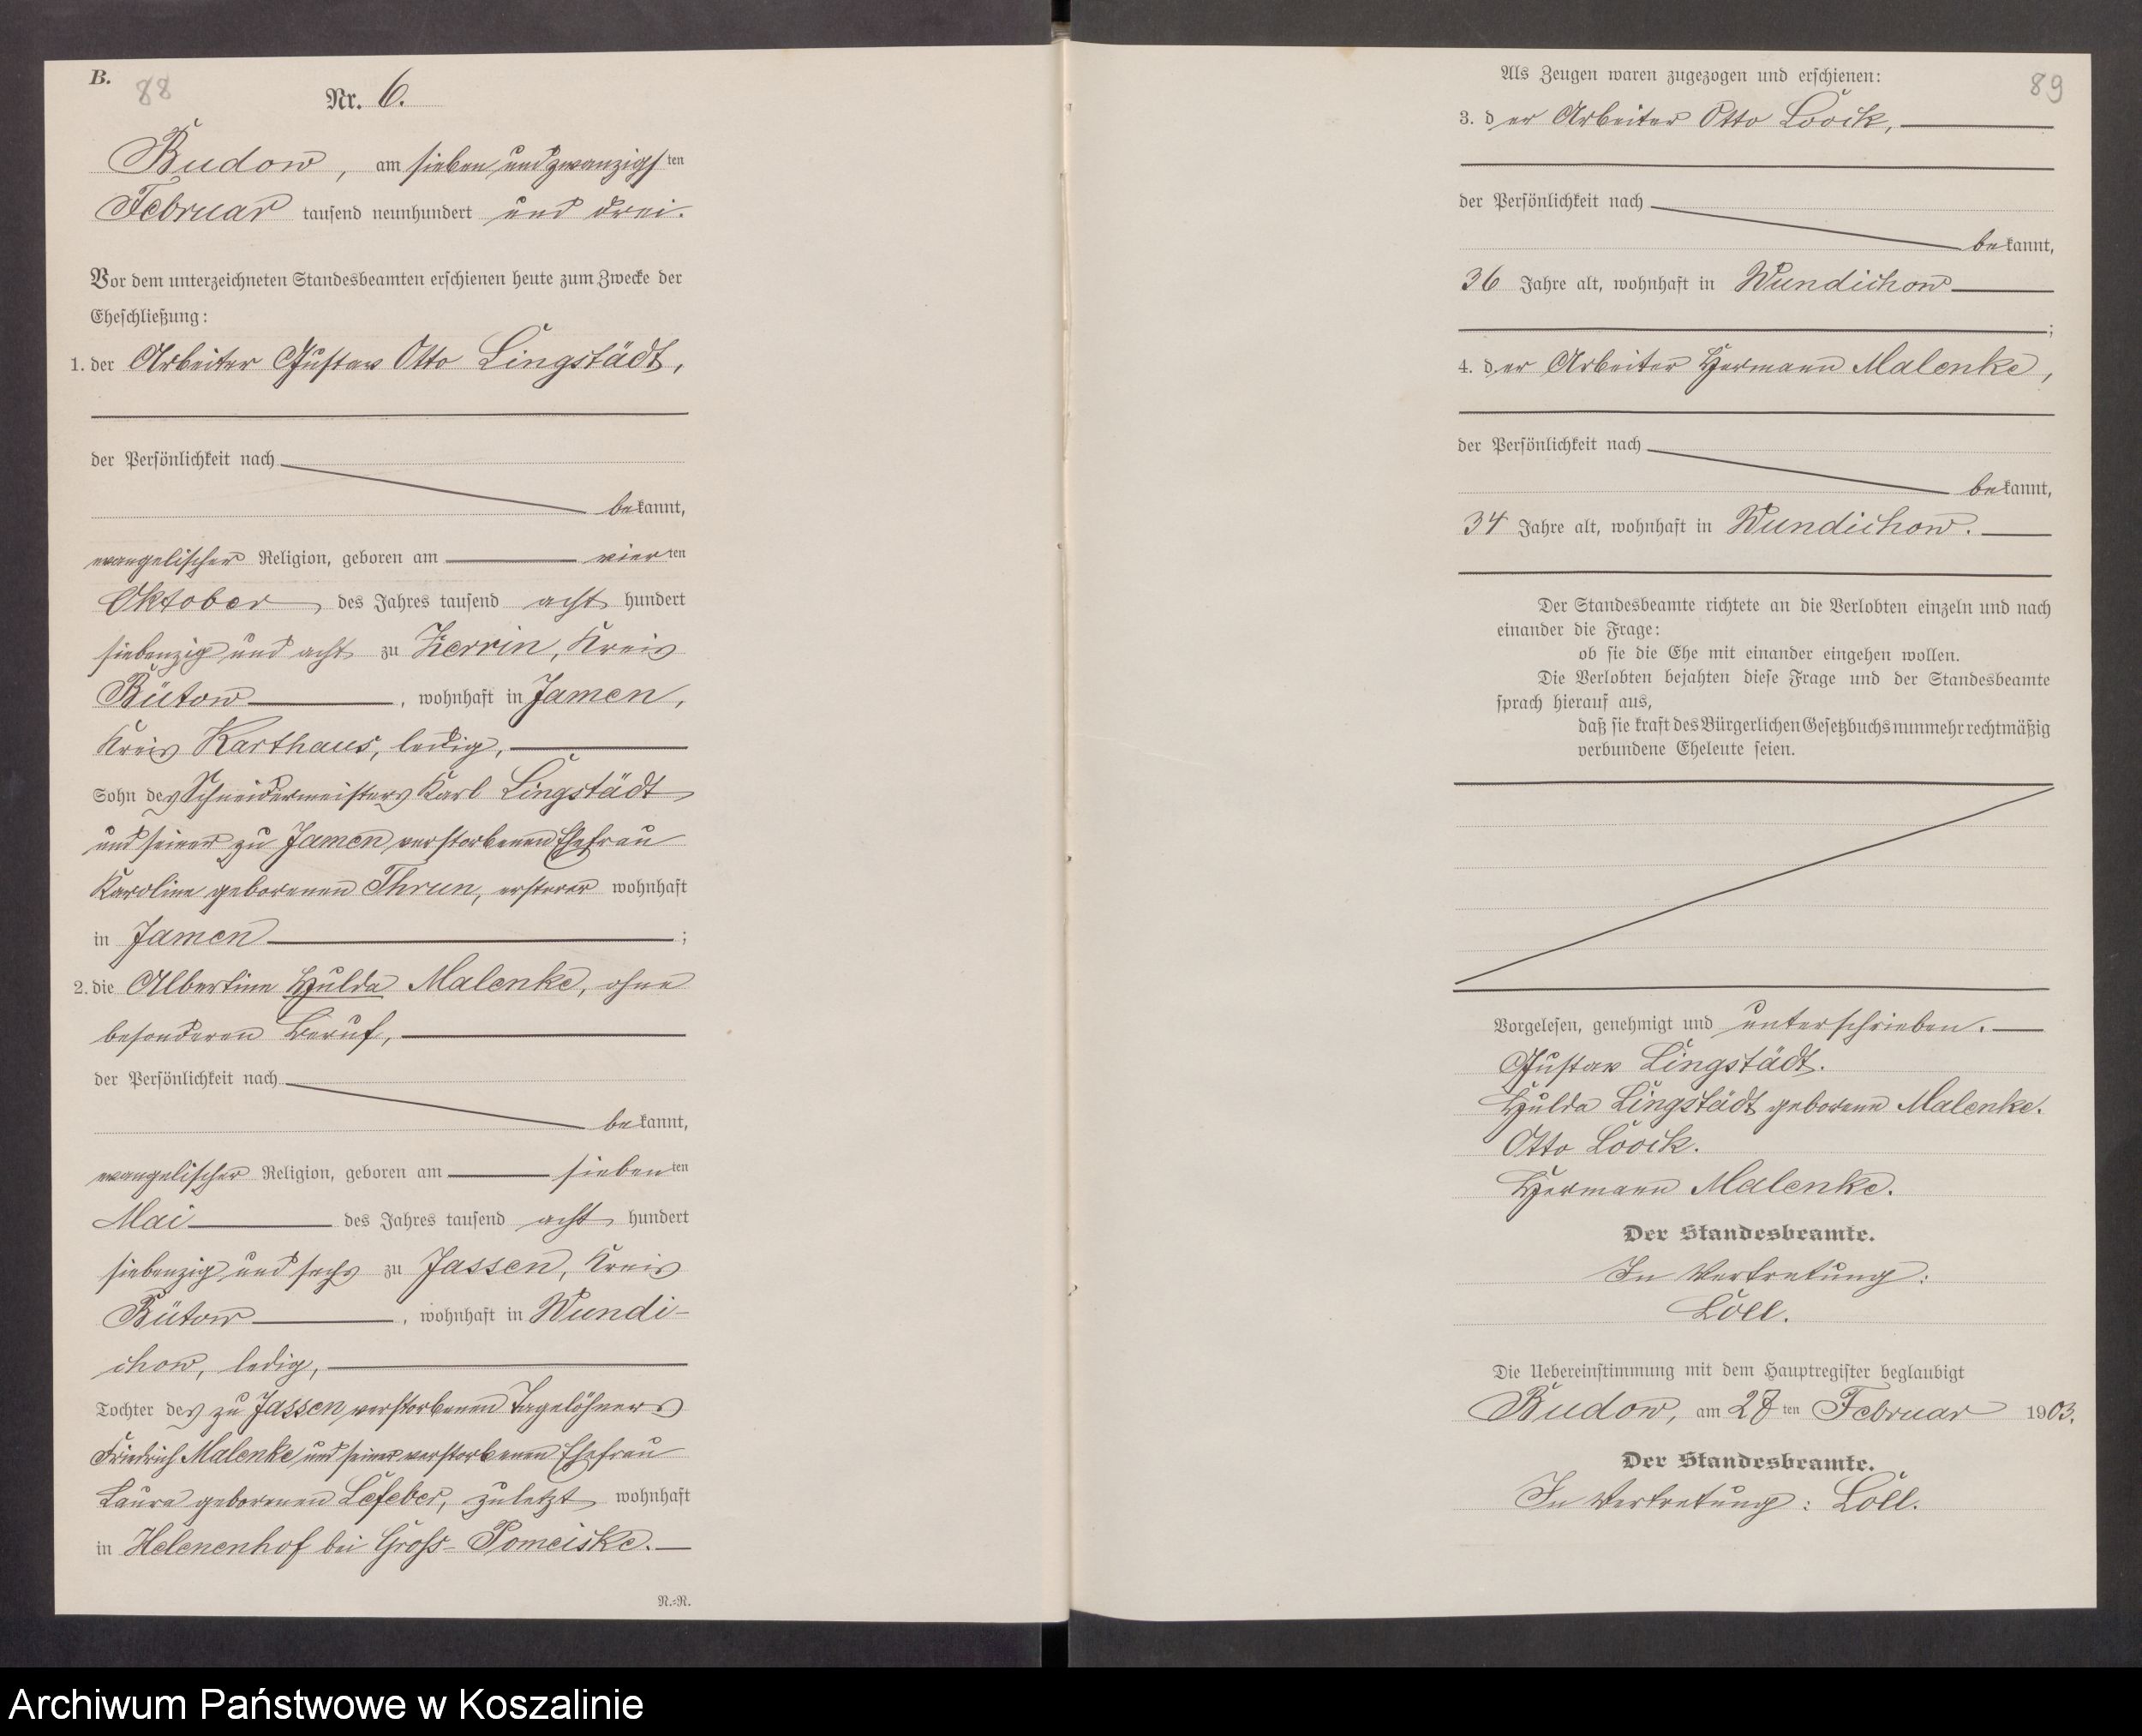 B.
88
Nr. 6.
Budow, am sieben und zwanzigsten
Februar tausend neunhundert und drei.
Vor dem unterzeichneten Standesbeamten erschienen heute zum Zwecke der
Eheschließung:
1. der Arbeiter Gustav Otto Lingstädt,
der Persönlichkeit nach
bekannt,
evangelischer Religion, geboren am vierten
Oktober des Jahres tausend acht hundert
siebenzig und acht zu Zerrin, Kreis
Bütow, wohnhaft in Jamen,
Kreis Karthaus, ledig,
Sohn des Schneidermeisters Karl Lingstädt
und seiner zu Jamen verstorbenen Ehefrau
Karoline geborenen Thrun, ersterer wohnhaft
in Jamen;
2. die Albertine Hulda Malenke, ohne
besonderen Beruf,
der Persönlichkeit nach
bekannt,
evangelischer Religion, geboren am siebenten
Mai des Jahres tausend acht hundert
siebenzig und sechs zu Jassen, Kreis
Bütow, wohnhaft in Wundi-
chow, ledig,
Tochter des zu Jassen verstorbenen Tagelöhners
Friedrich Malenke und seiner verstorbenen Ehefrau
Laura geborenen Lefeber, zuletzt wohnhaft
in Helenenhof bei Gross-Pomeiske.
N.=N.
Als Zeugen waren zugezogen und erschienen:
89
3. der Arbeiter Otto Loock,
der Persönlichkeit nach
bekannt,
36 Jahre alt, wohnhaft in Wundichow
;
4. der Arbeiter Hermann Malenke,
der Persönlichkeit nach
bekannt,
34 Jahre alt, wohnhaft in Wundichow.
Der Standesbeamte richtete an die Verlobten einzeln und nach
einander die Frage:
ob sie die Ehe mit einander eingehen wollen.
Die Verlobten bejahten diese Frage und der Standesbeamte
sprach hierauf aus,
daß sie kraft des Bürgerlichen Gesetzbuchs nunmehr rechtmäßig
verbundene Eheleute seien.
Vorgelesen, genehmigt und unterschrieben.
Gustav Lingstädt.
Hulda Lingstädt geborene Malenke.
Otto Loock.
Hermann Malenke.
Der Standesbeamte.
In Vertretung:
Löll.
Die Uebereinstimmung mit dem Hauptregister beglaubigt
Budow, am 27ten Februar 1903.
Der Standesbeamte.
In Vertretung: Löll.
Archiwum Państwowe w Koszalinie